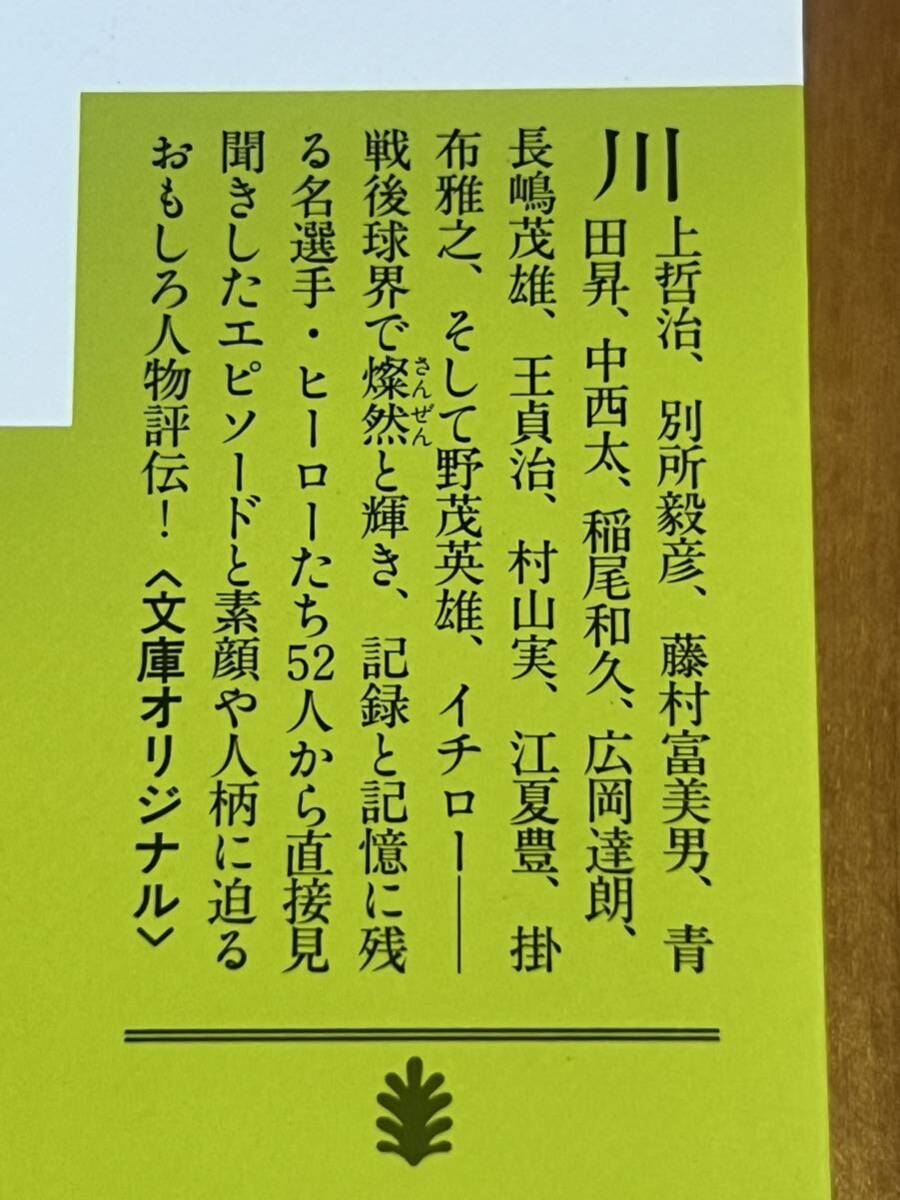 川上哲治、別所毅彦、藤村富美男、青
田昇、中西太、稲尾和久、広岡達朗、
長嶋茂雄、王貞治、村山実、江夏豊、掛
布雅之、そして野茂英雄、イチロー――
戦後球界で燦然と輝き、記録と記憶に残
さんぜん
る名選手・ヒーローたち52人から直接見
聞きしたエピソードと素顔や人柄に迫る
おもしろ人物評伝！〈文庫オリジナル〉